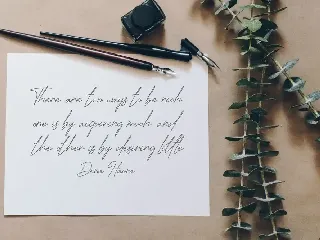 "There are two ways to be rich
one is by acquiring much and
the other is by desiring little